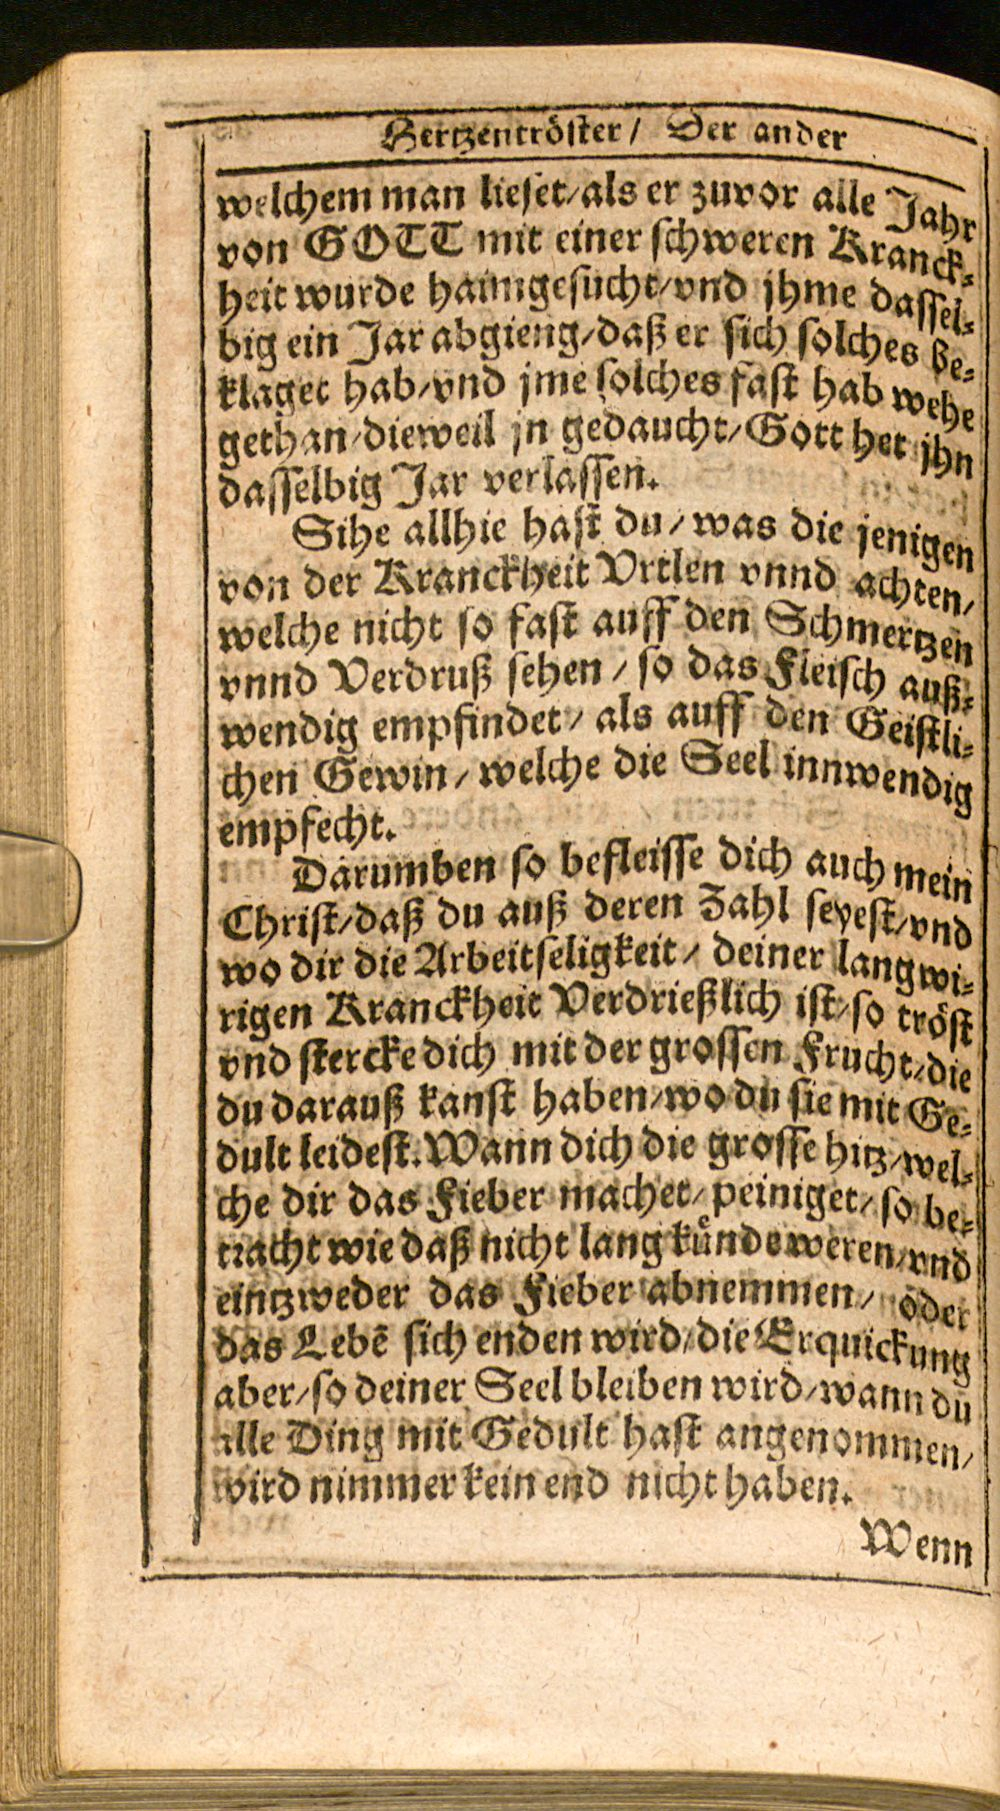 Hertzentröster/ Der ander
welchem man lieset/als er zuvor alle Jahr
von GOTT mit einer schweren Kranck-
heit wurde haimgesucht/vnd jhme dassel-
big ein Jar abgieng/daß er sich solches be-
klaget hab/vnd jme solches fast hab wehe
gethan/dieweil jn gedaucht/Gott het jhn
dasselbig Jar verlassen.
Sihe allhie hast du/was die jenigen
von der Kranckheit Vrtlen vnnd achten/
welche nicht so fast auff den Schmertzen
vnnd Verdruß sehen/so das Fleisch auß-
wendig empfindet/als auff den Geistli-
chen Gewin/welche die Seel innwendig
empfecht.
Darumben so befleisse dich auch mein
Christ/daß du auß deren Zahl seyest/vnd
wo dir die Arbeitseligkeit/deiner langwi-
rigen Kranckheit Verdrießlich ist/so tröst
vnd stercke dich mit der grossen Frucht/die
du darauß kanst haben/wo du sie mit Ge-
dult leidest. Wann dich die grosse hitz/wel-
che dir das Fieber machet/peiniget/so be-
tracht wie daß nicht lang kuͤnde weren/vnd
eintzweder das Fieber abnemmen/ oder
das Lebē sich enden wird/die Erquickung
aber/so deiner Seel bleiben wird/wann du
alle Ding mit Gedult hast angenommen/
wird nimmer kein end nicht haben.
Wenn